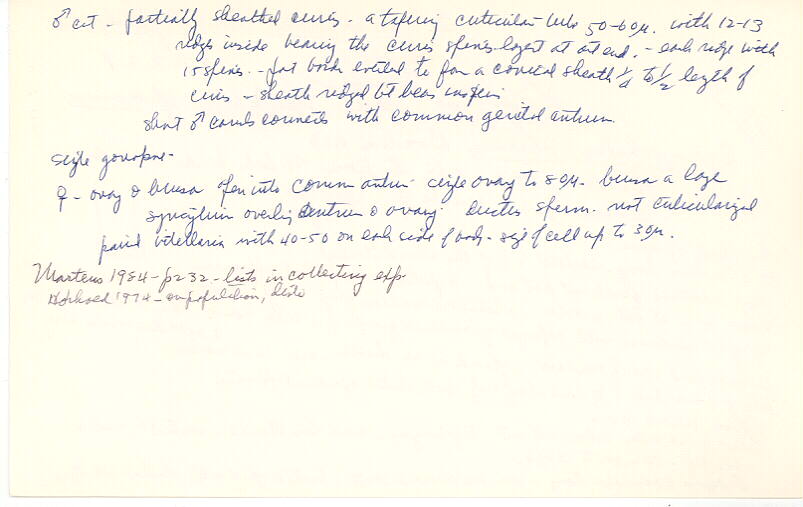 ♂ cut - partially sheathed cirrus - a tapering cuticular tube 50-60µ. with 12-13
ridges inside bearing the cirrus spines largest at dist end. - each ridge with
15 spines. - part border everted to form a conical sheath 1/4 to 1/2 length of
cirrus - sheath ridged but bears no spines
short ♂ canal connects with common genital antrum.
single gonopore -
♀ - ovary & bursa open into common antrum single ovary to 80µ. bursa a large
syncytium overlying antrum & ovary ductus sperm. not cuticularized
paired vitellaria with 40-50 on each side of body - size of cell up to 30µ.
Martens 1984 - p232 - lists in collecting exp
1974 - on population, distr